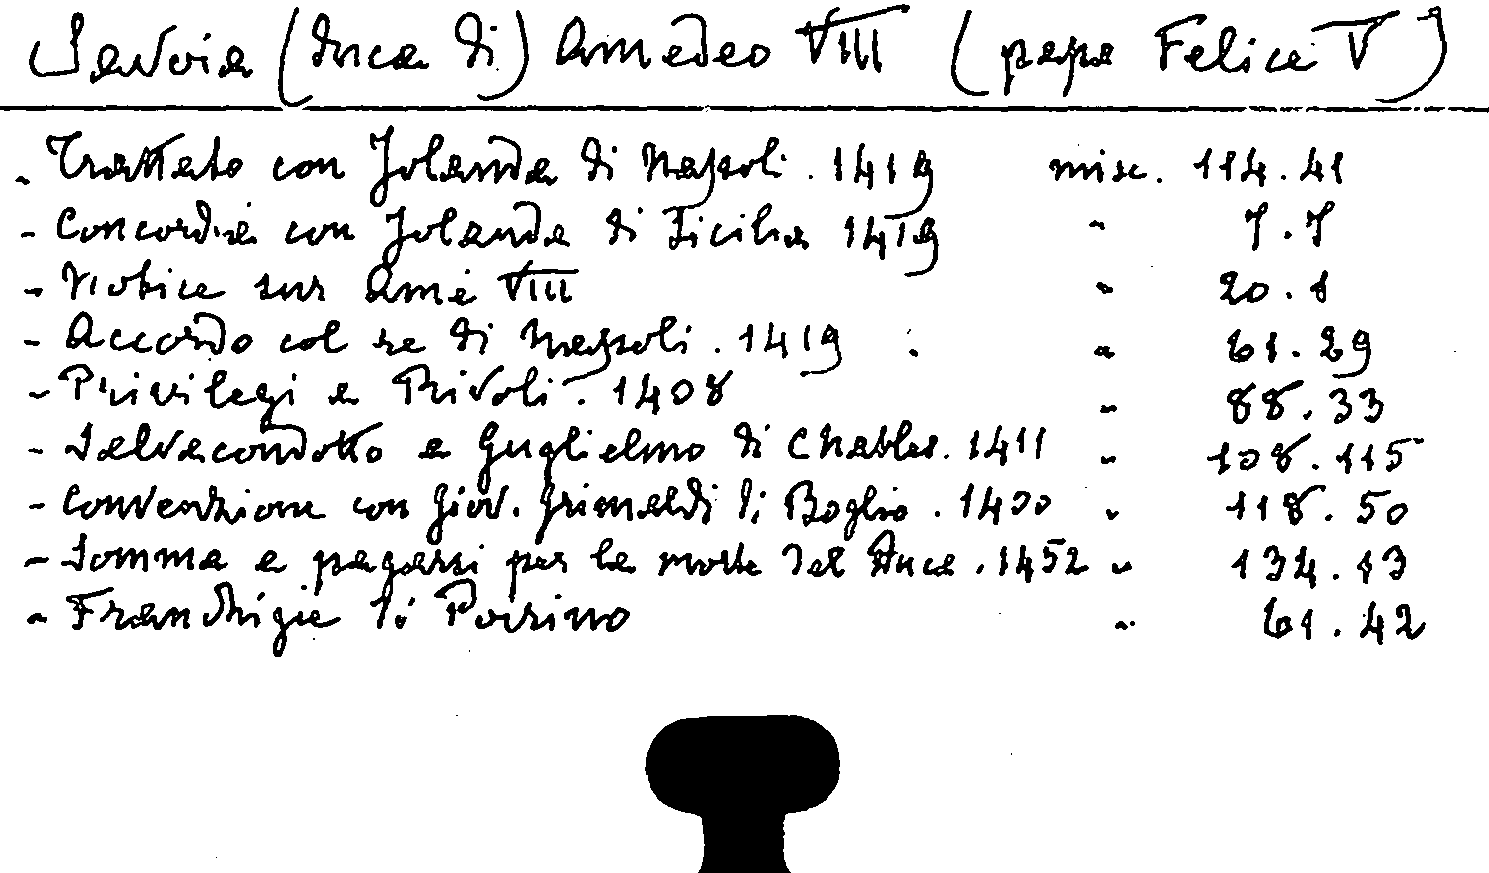 Savoia (duca di) Amedeo VIII (papa Felice V)
- Trattato con Jolanda di Napoli. 1419 misc. 114.41
- Concordia con Jolanda di Sicilia 1419 " 7.7
- Notice sur Amé VIII " 20.1
- Accordo col re di Napoli. 1419 . " 61.29
- Privilegi a Rivoli. 1408 " 88.33
- Salvacondotto a Guglielmo di Chables. 1411 " 108.115
- Convenzione con Giov. Grimaldi di Boglio. 1400 " 118.50
- Somma a pagarsi per la morte del Duca. 1452 " 134.13
- Franchigie di Poirino " 61.42